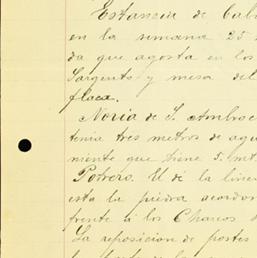 Estancia de Cab
en la semana 25
da que agosta en los
Sargento y mesa del
flaca.
Noria de S. Ambroc
tenia tres metros de agu
niente que tiene 5. mt
Potrero. U dé la line
esta la piedra acordon
frente á los Charcos
La reposicion de postes